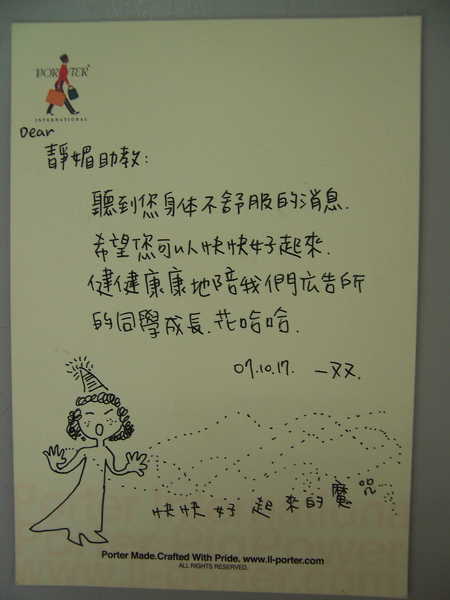 PORTER
INTERNATIONAL
Dear
靜媚助教:
聽到您身体不舒服的消息.
希望您可以快快好起來.
健健康康地陪我們广告所
的同學成長.花哈哈.
07.10.17. 一双.
快快好起來的魔咒
Porter Made.Crafted With Pride. www.ll-porter.com
ALL RIGHTS RESERVED.